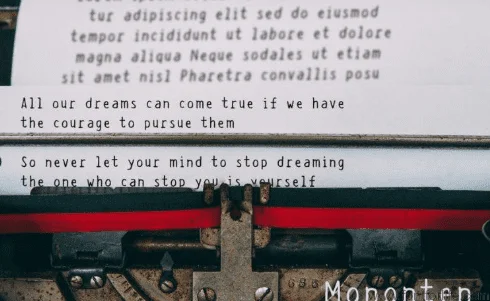 tur adipiscing elit sed do eiusmod
tempor incididunt ut labore et dolore
magna aliqua Neque sodales ut etiam
sit amet nisl Pharetra convallis posu
All our dreams can come true if we have
the courage to pursue them
So never let your mind to stop dreaming
the one who can stop you is yourself
Mononten